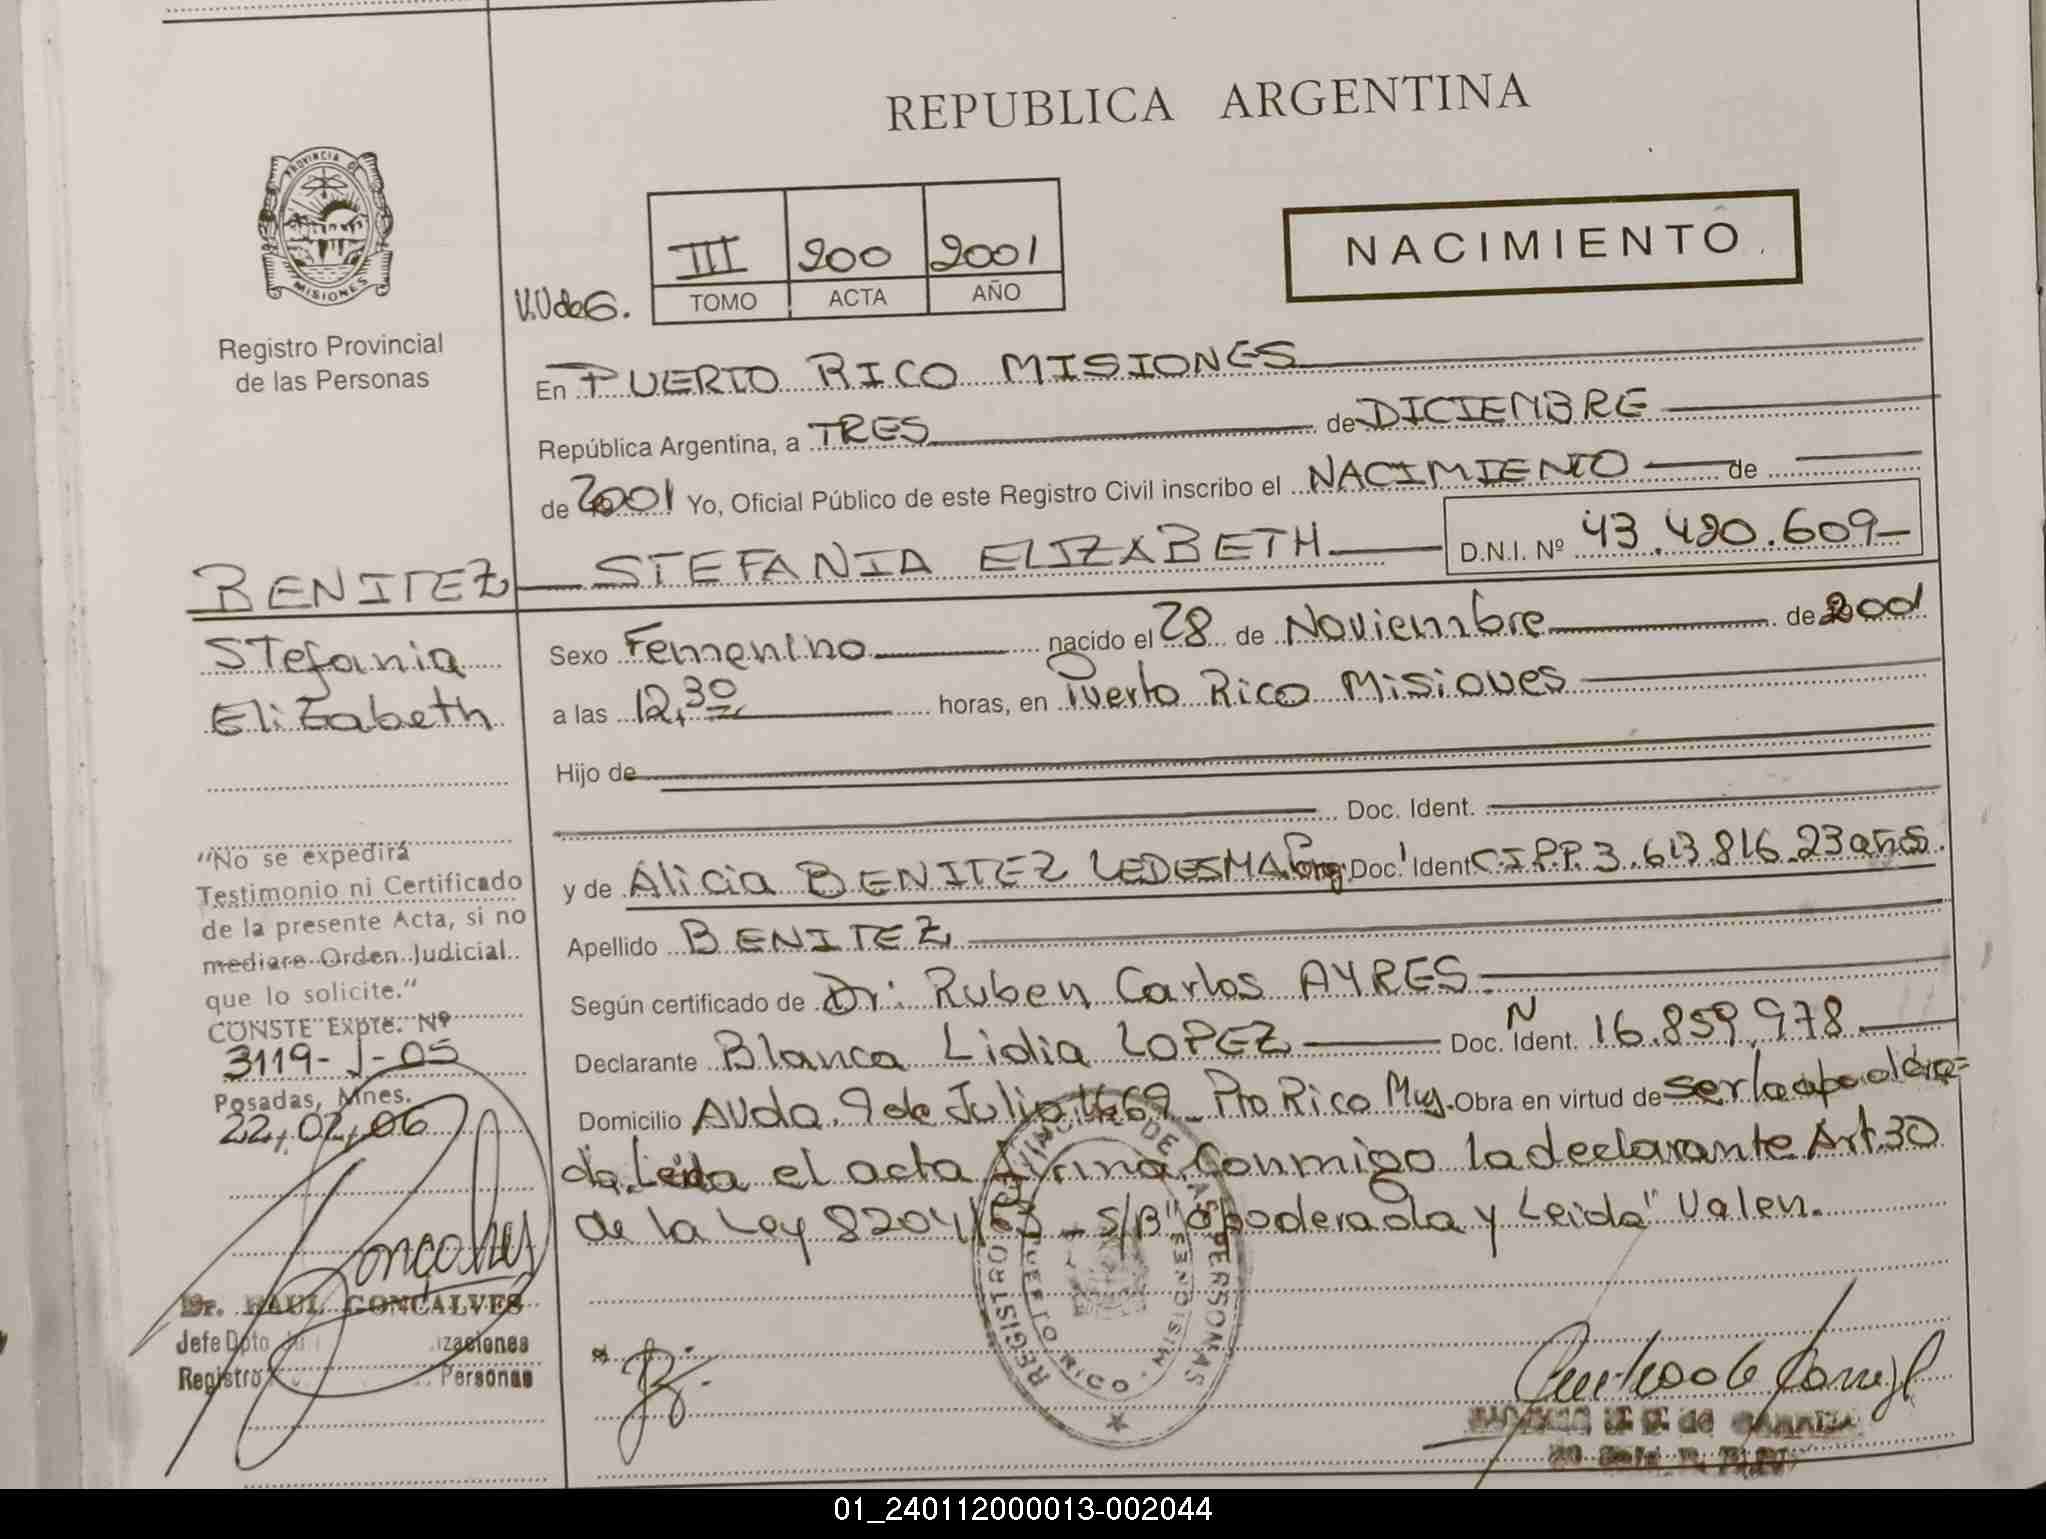 REPUBLICA ARGENTINA
PROVINCIA DE
MISIONES
Registro Provincial
de las Personas
III 200 2001
TOMO ACTA AÑO
NACIMIENTO
V.V de G.
En PUERTO RICO MISIONES
República Argentina, a TRES de DICIEMBRE
de 2001 Yo, Oficial Público de este Registro Civil inscribo el NACIMIENTO de
BENITEZ STEFANIA ELIZABETH D.N.I. Nº 43.420.609
Stefania
Elizabeth
Sexo Femenino nacido el 28 de Noviembre de 2001
a las 12,30 horas, en Puerto Rico Misiones
Hijo de
Doc. Ident.
y de Alicia BENITEZ LEDESMA Doc. Ident C.I.P.P. 3.613.816 23 años.
Apellido BENITEZ
Según certificado de Dr. Ruben Carlos AYRES
Declarante Blanca Lidia LOPEZ Doc. N Ident. 16.859.978
Domicilio Avda. 9 de Julio 1469 Pto Rico Mns. Obra en virtud de ser la apodera=
da. Leida el acta firma conmigo la declarante Art. 30
de la Ley 8204/63 _ S/B "apoderada y Leida" Valen.
"No se expedirá
Testimonio ni Certificado
de la presente Acta, si no
mediare Orden Judicial
que lo solicite."
CONSTE Expte. Nº
3119-J-05
Posadas, Mnes.
22,02,06
Goncalves
Dr. RAUL GONÇALVES
Jefe Dpto
Registro Personas
REGISTRO PROVINCIAL DE LAS PERSONAS
PUERTO RICO MISIONES
01_240112000013-002044